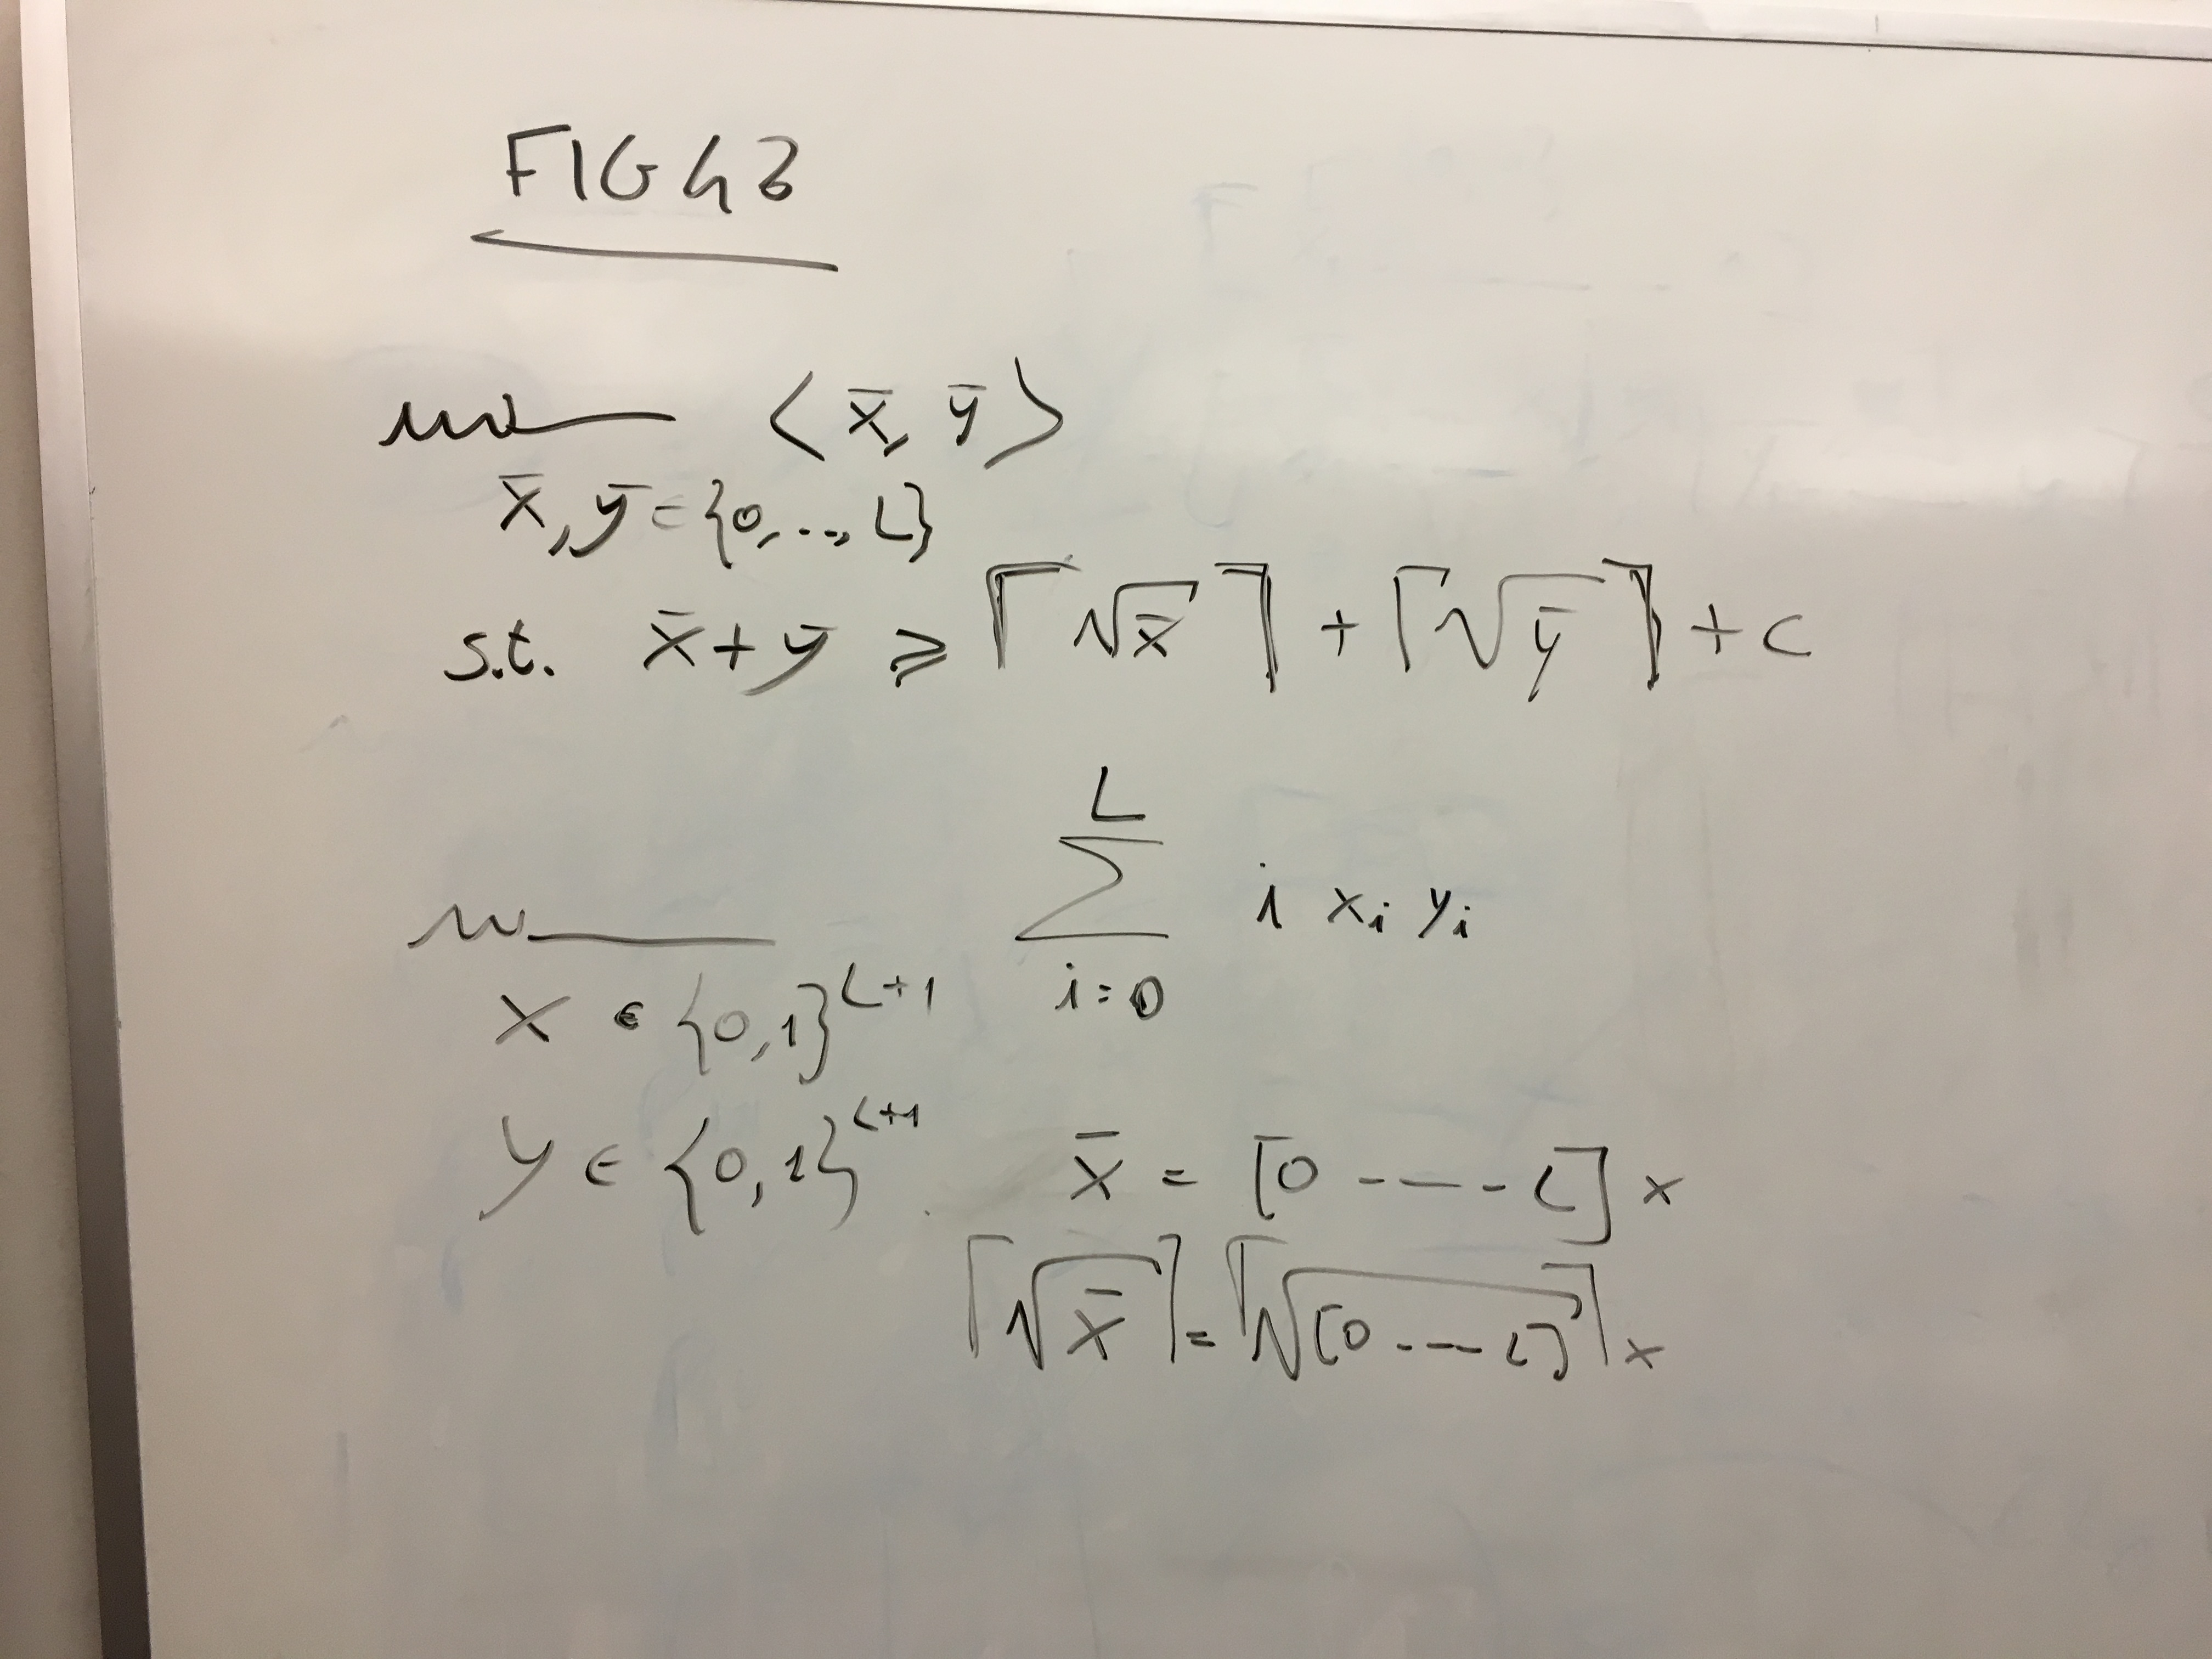 FIG 43
min ⟨x̄, ȳ⟩
x̄, ȳ ∈ {0, .., L}
s.t. x̄ + ȳ ⩾ ⌈√x̄⌉ + ⌈√ȳ⌉ + c
∑_{i=0}^{L} i xᵢ yᵢ
x ∈ {0,1}^{L+1}
y ∈ {0,1}^{L+1}
x̄ = [0 ---- L] x
⌈√x̄⌉ = ⌈√[0 ---- L]⌉ x